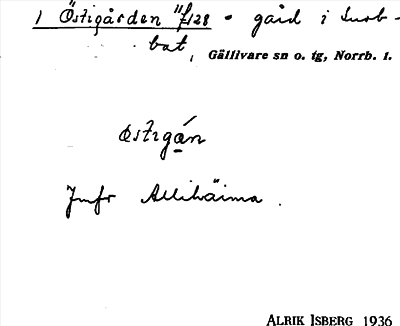 1 Östigården 11/128 • gård i Surb-
bat,
Gällivare sn o. tg, Norrb. l.
östıgán
Jmfr Allihäima.
ALRIK ISBERG 1936